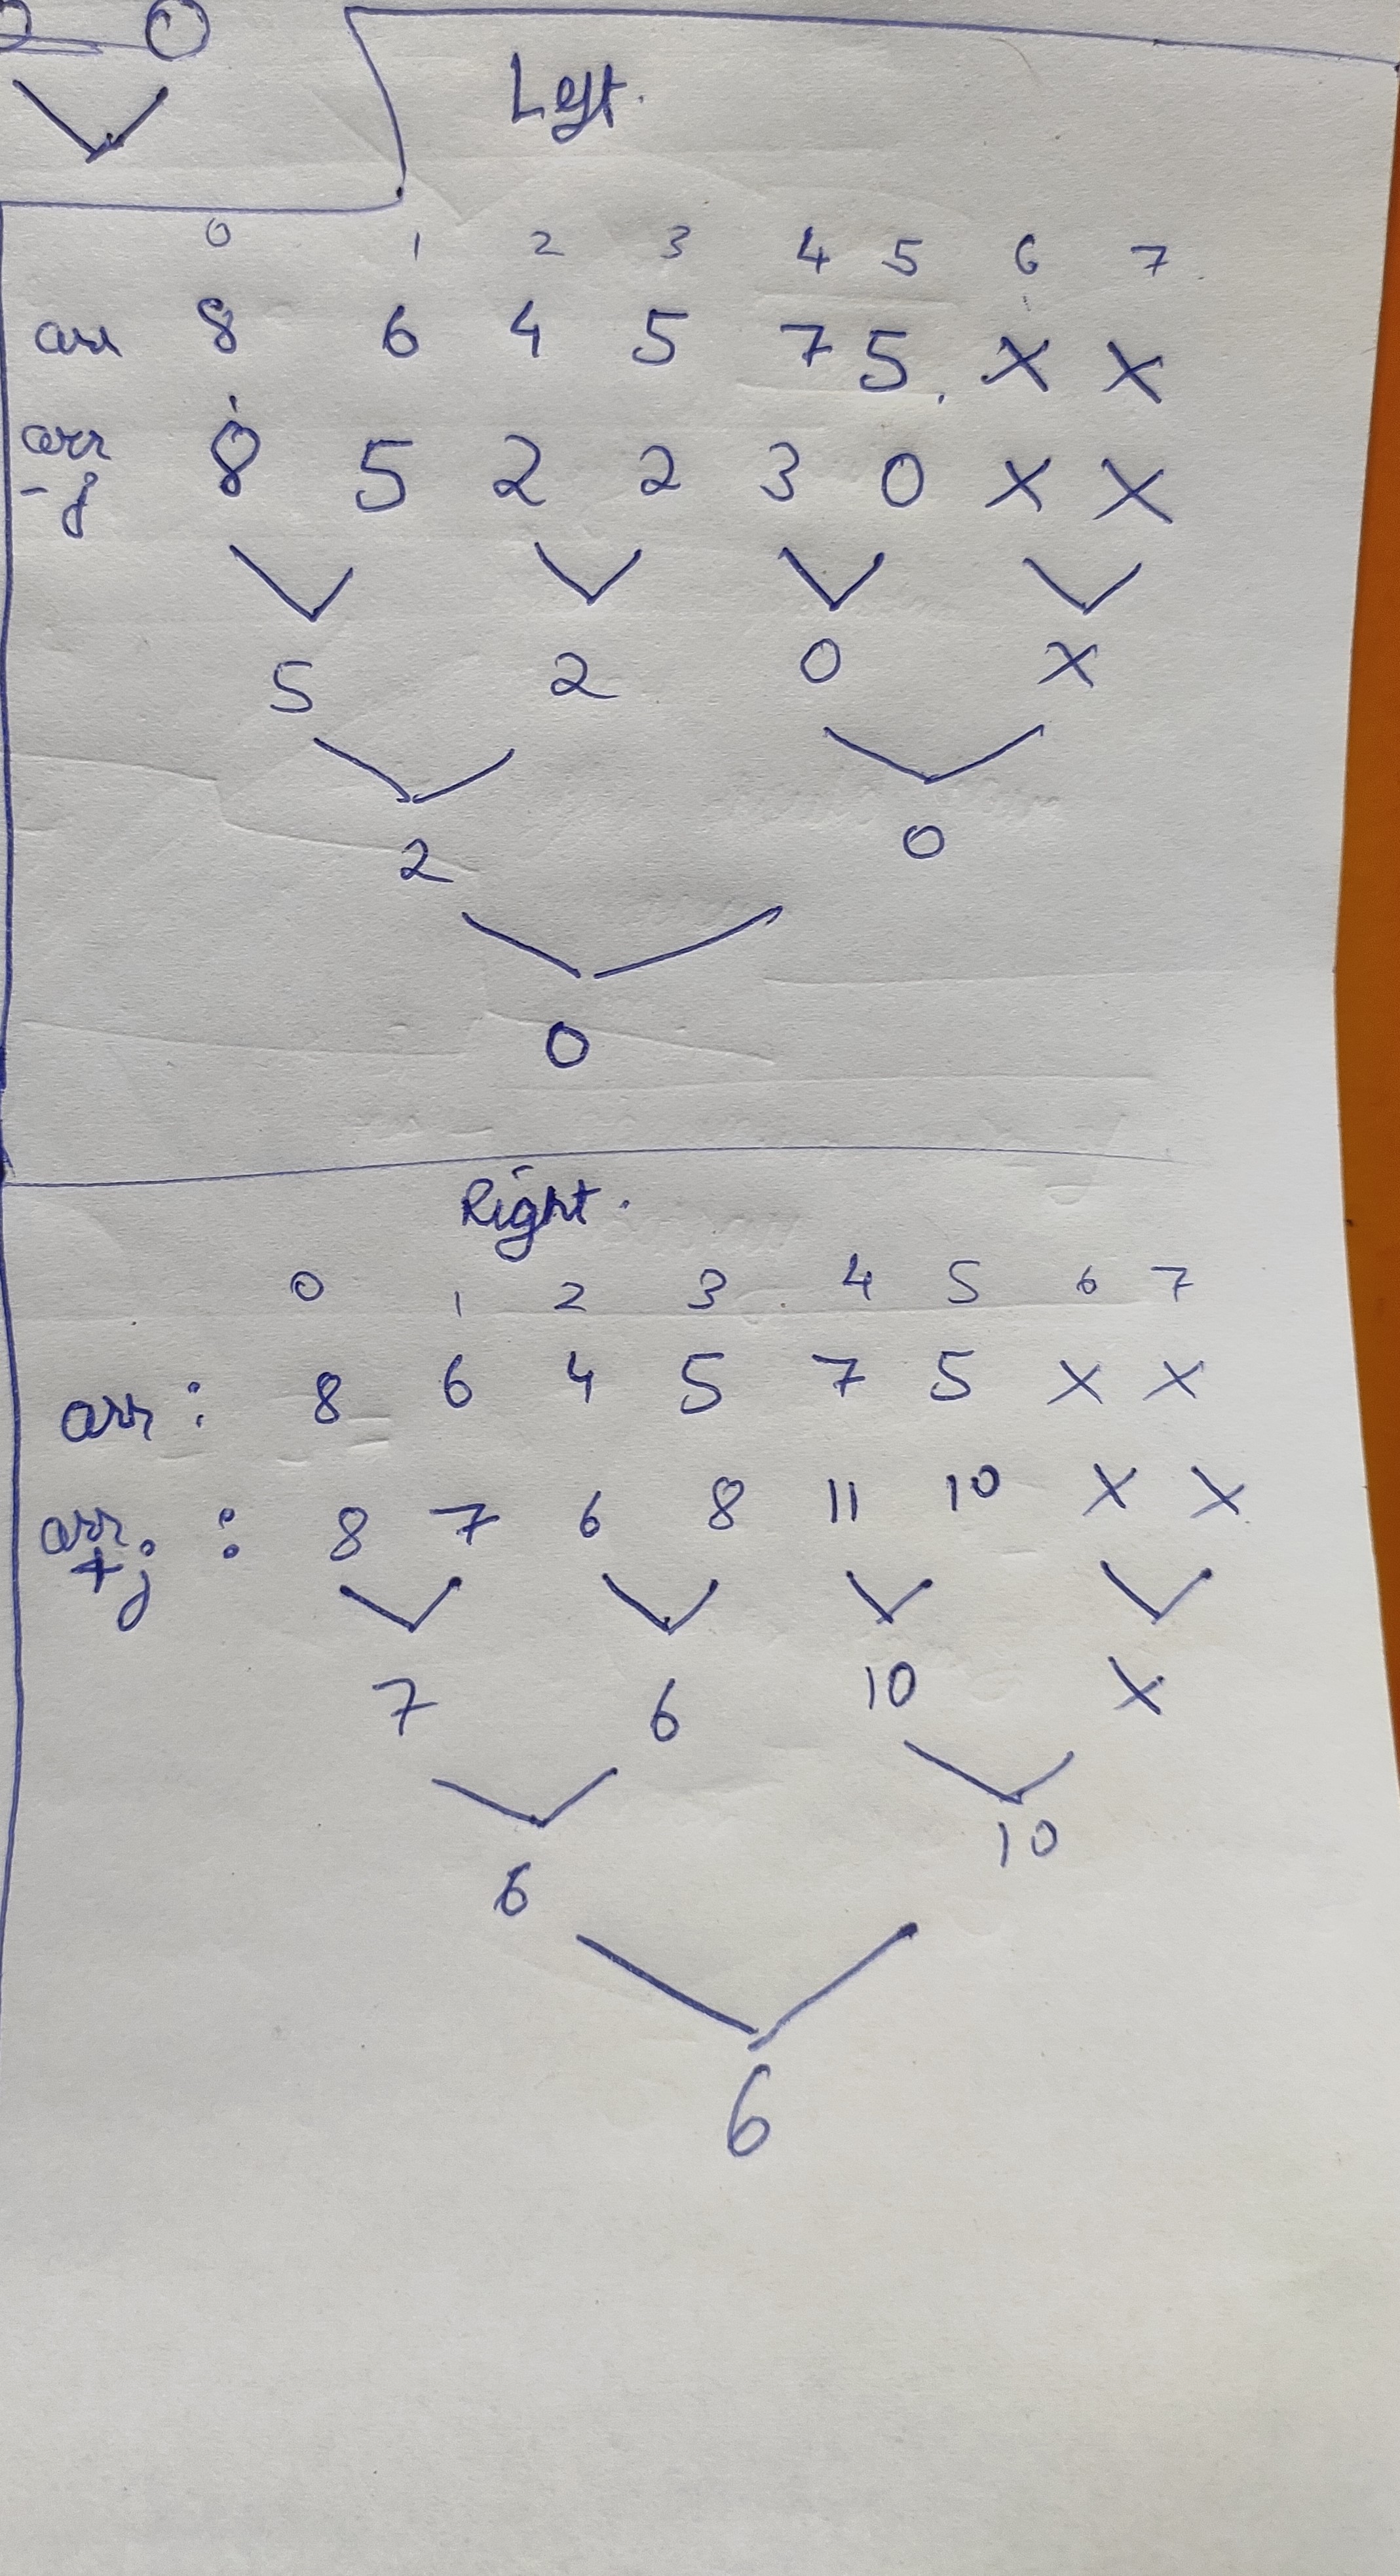 Left.
0 1 2 3 4 5 6 7
arr 8 6 4 5 7 5 x x
arr 8 5 2 2 3 0 x x
-j
5 2 0 x
2 0
0
Right.
0 1 2 3 4 5 6 7
arr : 8 6 4 5 7 5 x x
arr : 8 7 6 8 11 10 x x
+j
7 6 10 x
6 10
6